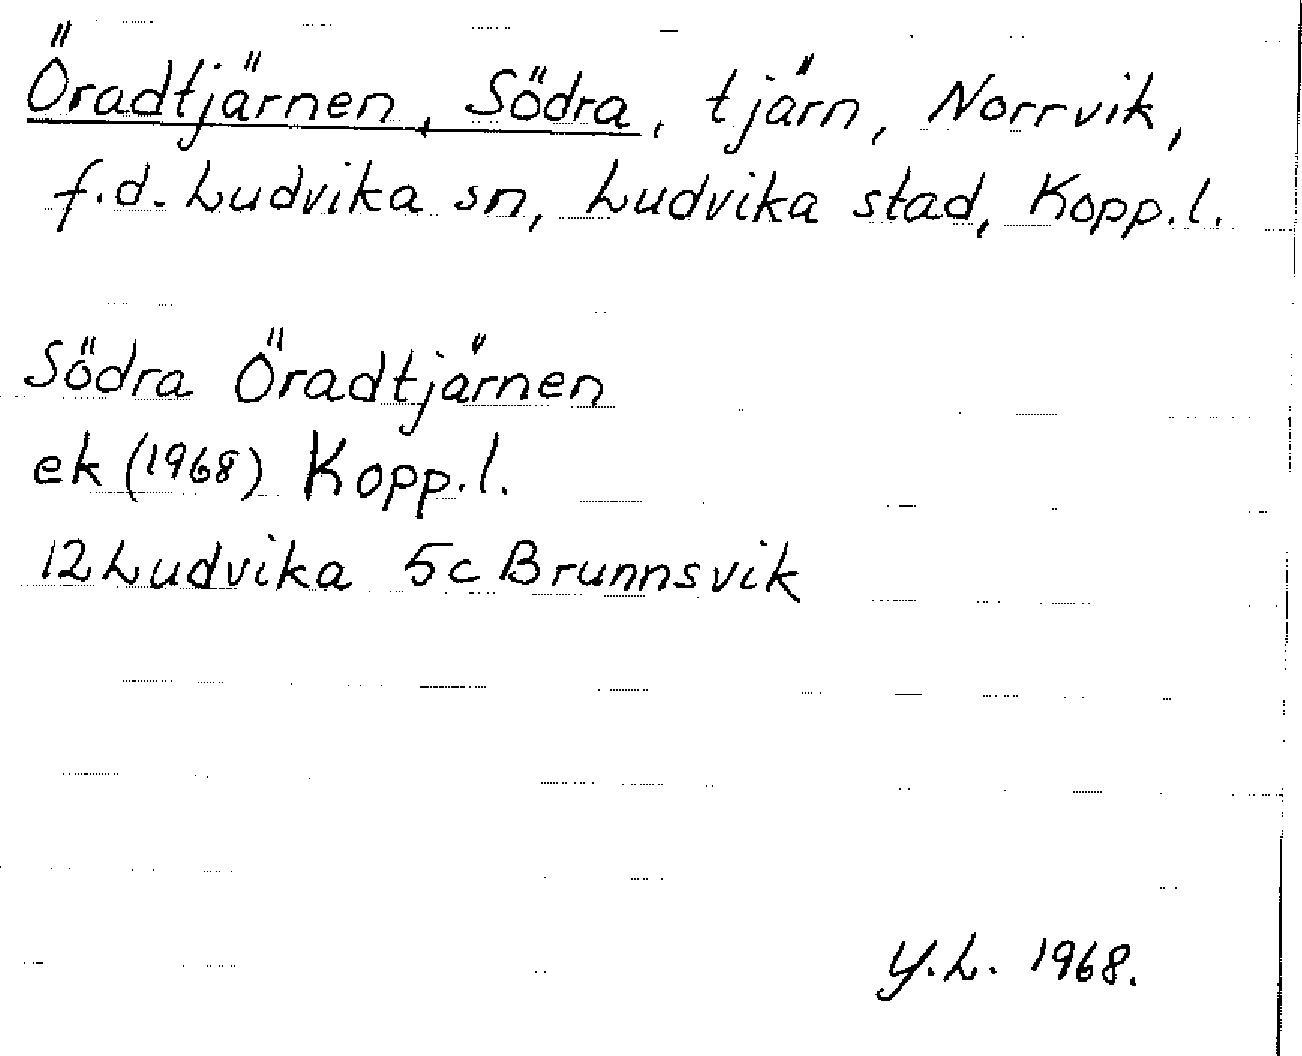 Öradtjärnen, Södra, tjärn, Norrvik,
f.d. Ludvika sn, Ludvika stad, Kopp.l.
Södra Öradtjärnen
ek (1968) Kopp.l.
12 Ludvika 5c Brunnsvik
Y.L. 1968.